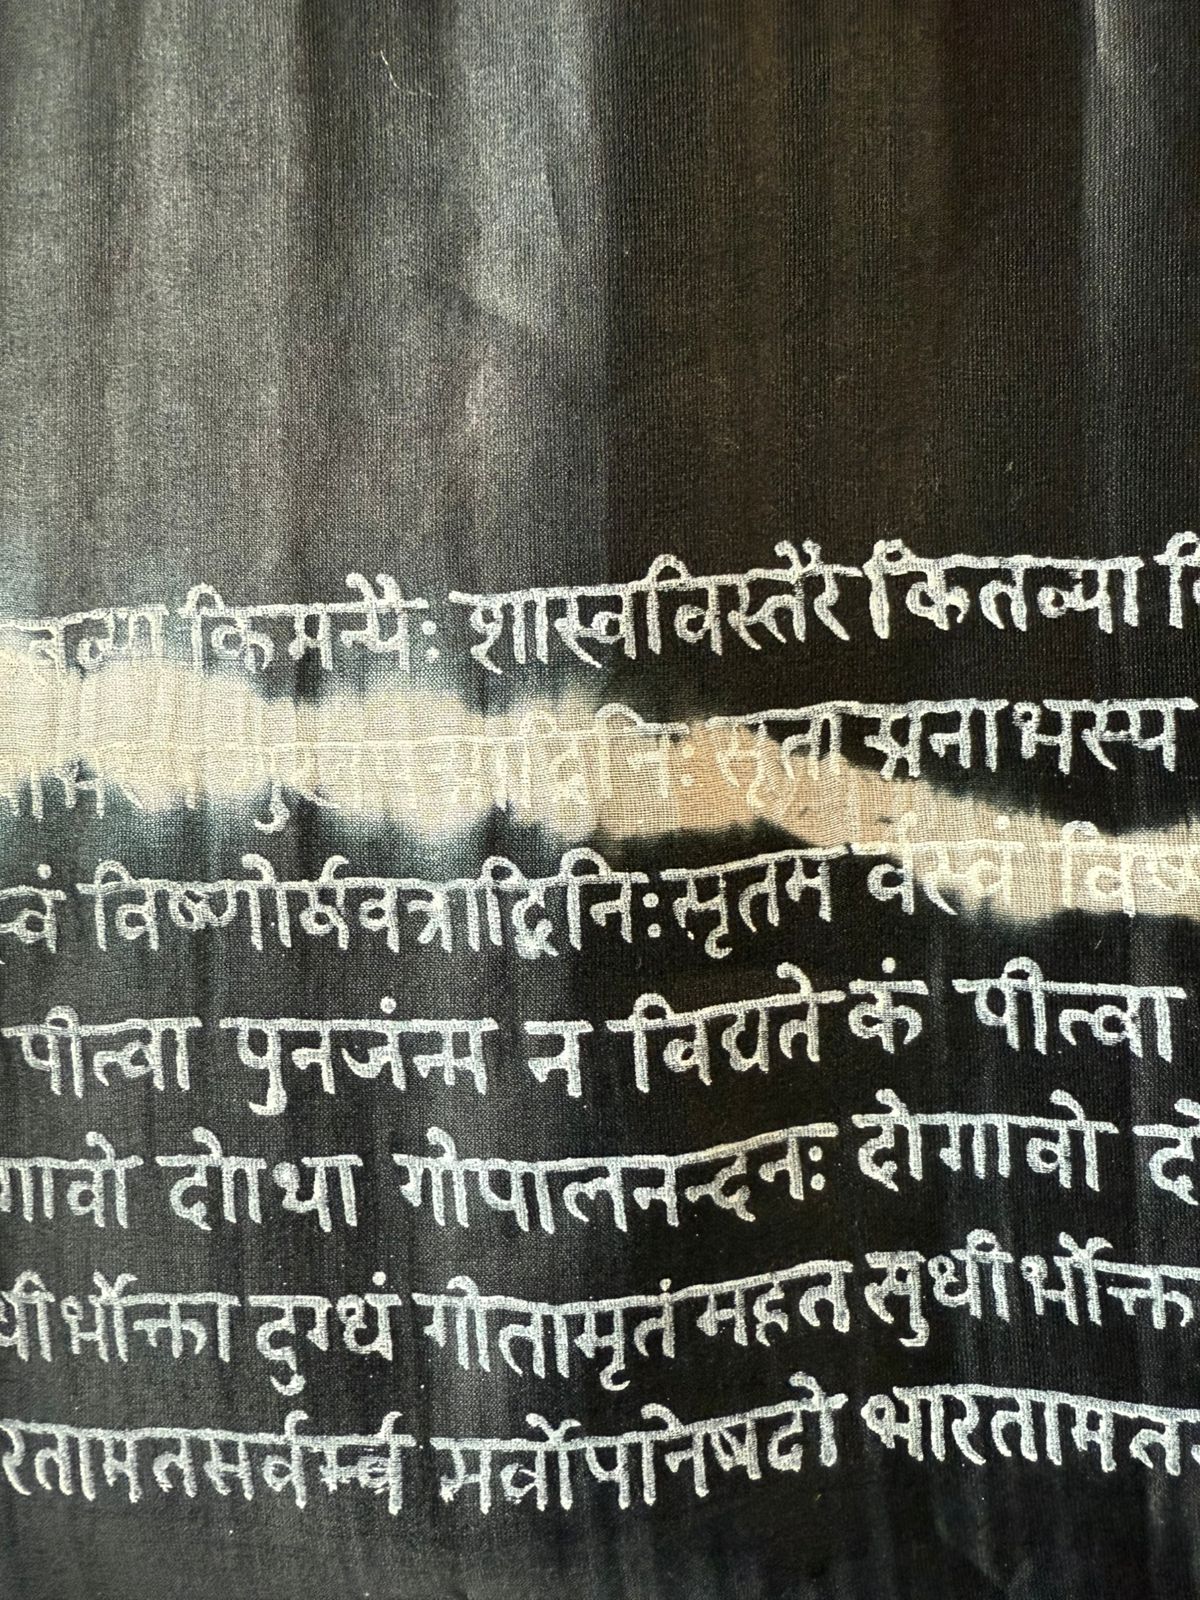 किमन्यैः शास्वविस्तरै कितव्या
द्विनिः सृता द्मनाभस्य
विष्णोर्रूवत्राद्विनिःसृतम वंस्वं
पीत्वा पुनजंन्म न विद्यते कं पीत्वा
गावो दोाधा गोपालनन्दनः दोगावो
धीर्भोक्ता दुग्धं गीतामृतं महत सुधीर्भोक्ता
रतामतसर्वम्बं सर्वोपानेषदो भारतामत